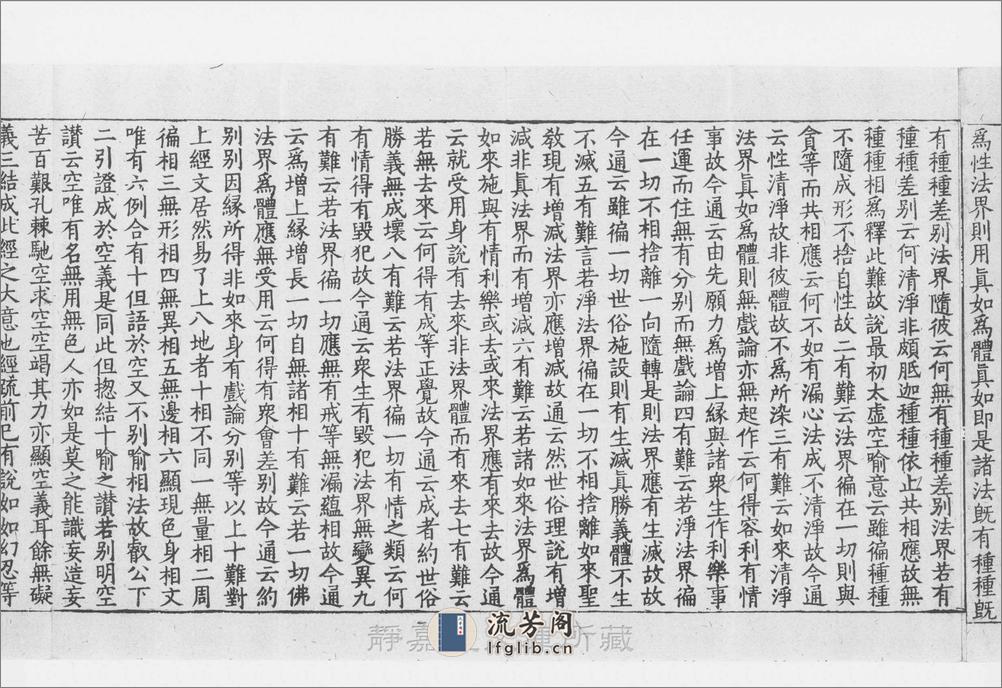 爲性法界則用真如爲體真如即是諸法旣有種種旣
有種種差别法界隨彼云何無有種種差别法界若有
種種差别云何清淨非頗胝迦種種種依止共相應故無
種種相爲釋此難故說最初太虚空喻意云雖徧種種
不隨成形不捨自性故二有難云法界徧在一切則與
貪等而共相應云何不如有漏心法成不清淨故今通
云性清淨故非彼體故不爲所染三有難云如來清淨
法界真如爲體則無戲論亦無起作云何得容利有情
事故今通云由先願力爲增上縁與諸衆生作利樂事
任運而住無有分别而無戲論四有難云若淨法界徧
在一切不相捨離一向隨轉是則法界應有生滅故故
今通云雖徧一切世俗施設則有生滅真勝義體不生
不滅五有難言若淨法界徧在一切不相捨離如來聖
敎現有增減法界亦應增減故通云然世俗理說有增
減非真法界而有增減六有難云若諸如來法界爲體
如來施與有情利樂或去或來法界應有來去故今通
云就受用身說有去來非法界體而有來去七有難云
若無去來云何得有成等正覺故今通云成者約世俗
勝義無成壞八有難云若法界徧一切有情之類云何
有情得有毀犯故今通云衆生有毀犯法界無變異九
有難云若法界徧一切應無有戒等無漏蘊相故今通
云爲增上縁增長一切自無諸相十有難云若一切佛
法界爲體應無受用云何得有衆會差别故今通云約
别别因縁所得非如來身有戲論分别等以上十難對
上經文居然易了上八地者十相不同一無量相二周
徧相三無形相四無異相五無邊相六顯現色身相文
唯有六例合有十但語於空又不别喻相法故叡公下
二引證成於空義是同此但揔結十喻之讃若别明空
讃云空唯有名無用無色人亦如是莫之能識妄造妄
苦百艱孔棘馳空求空空竭其力亦顯空義耳餘無礙
義三結成此經之大意也經疏前已有說如如幻忍等
静嘉
所藏
流芳阁
lfglib.cn